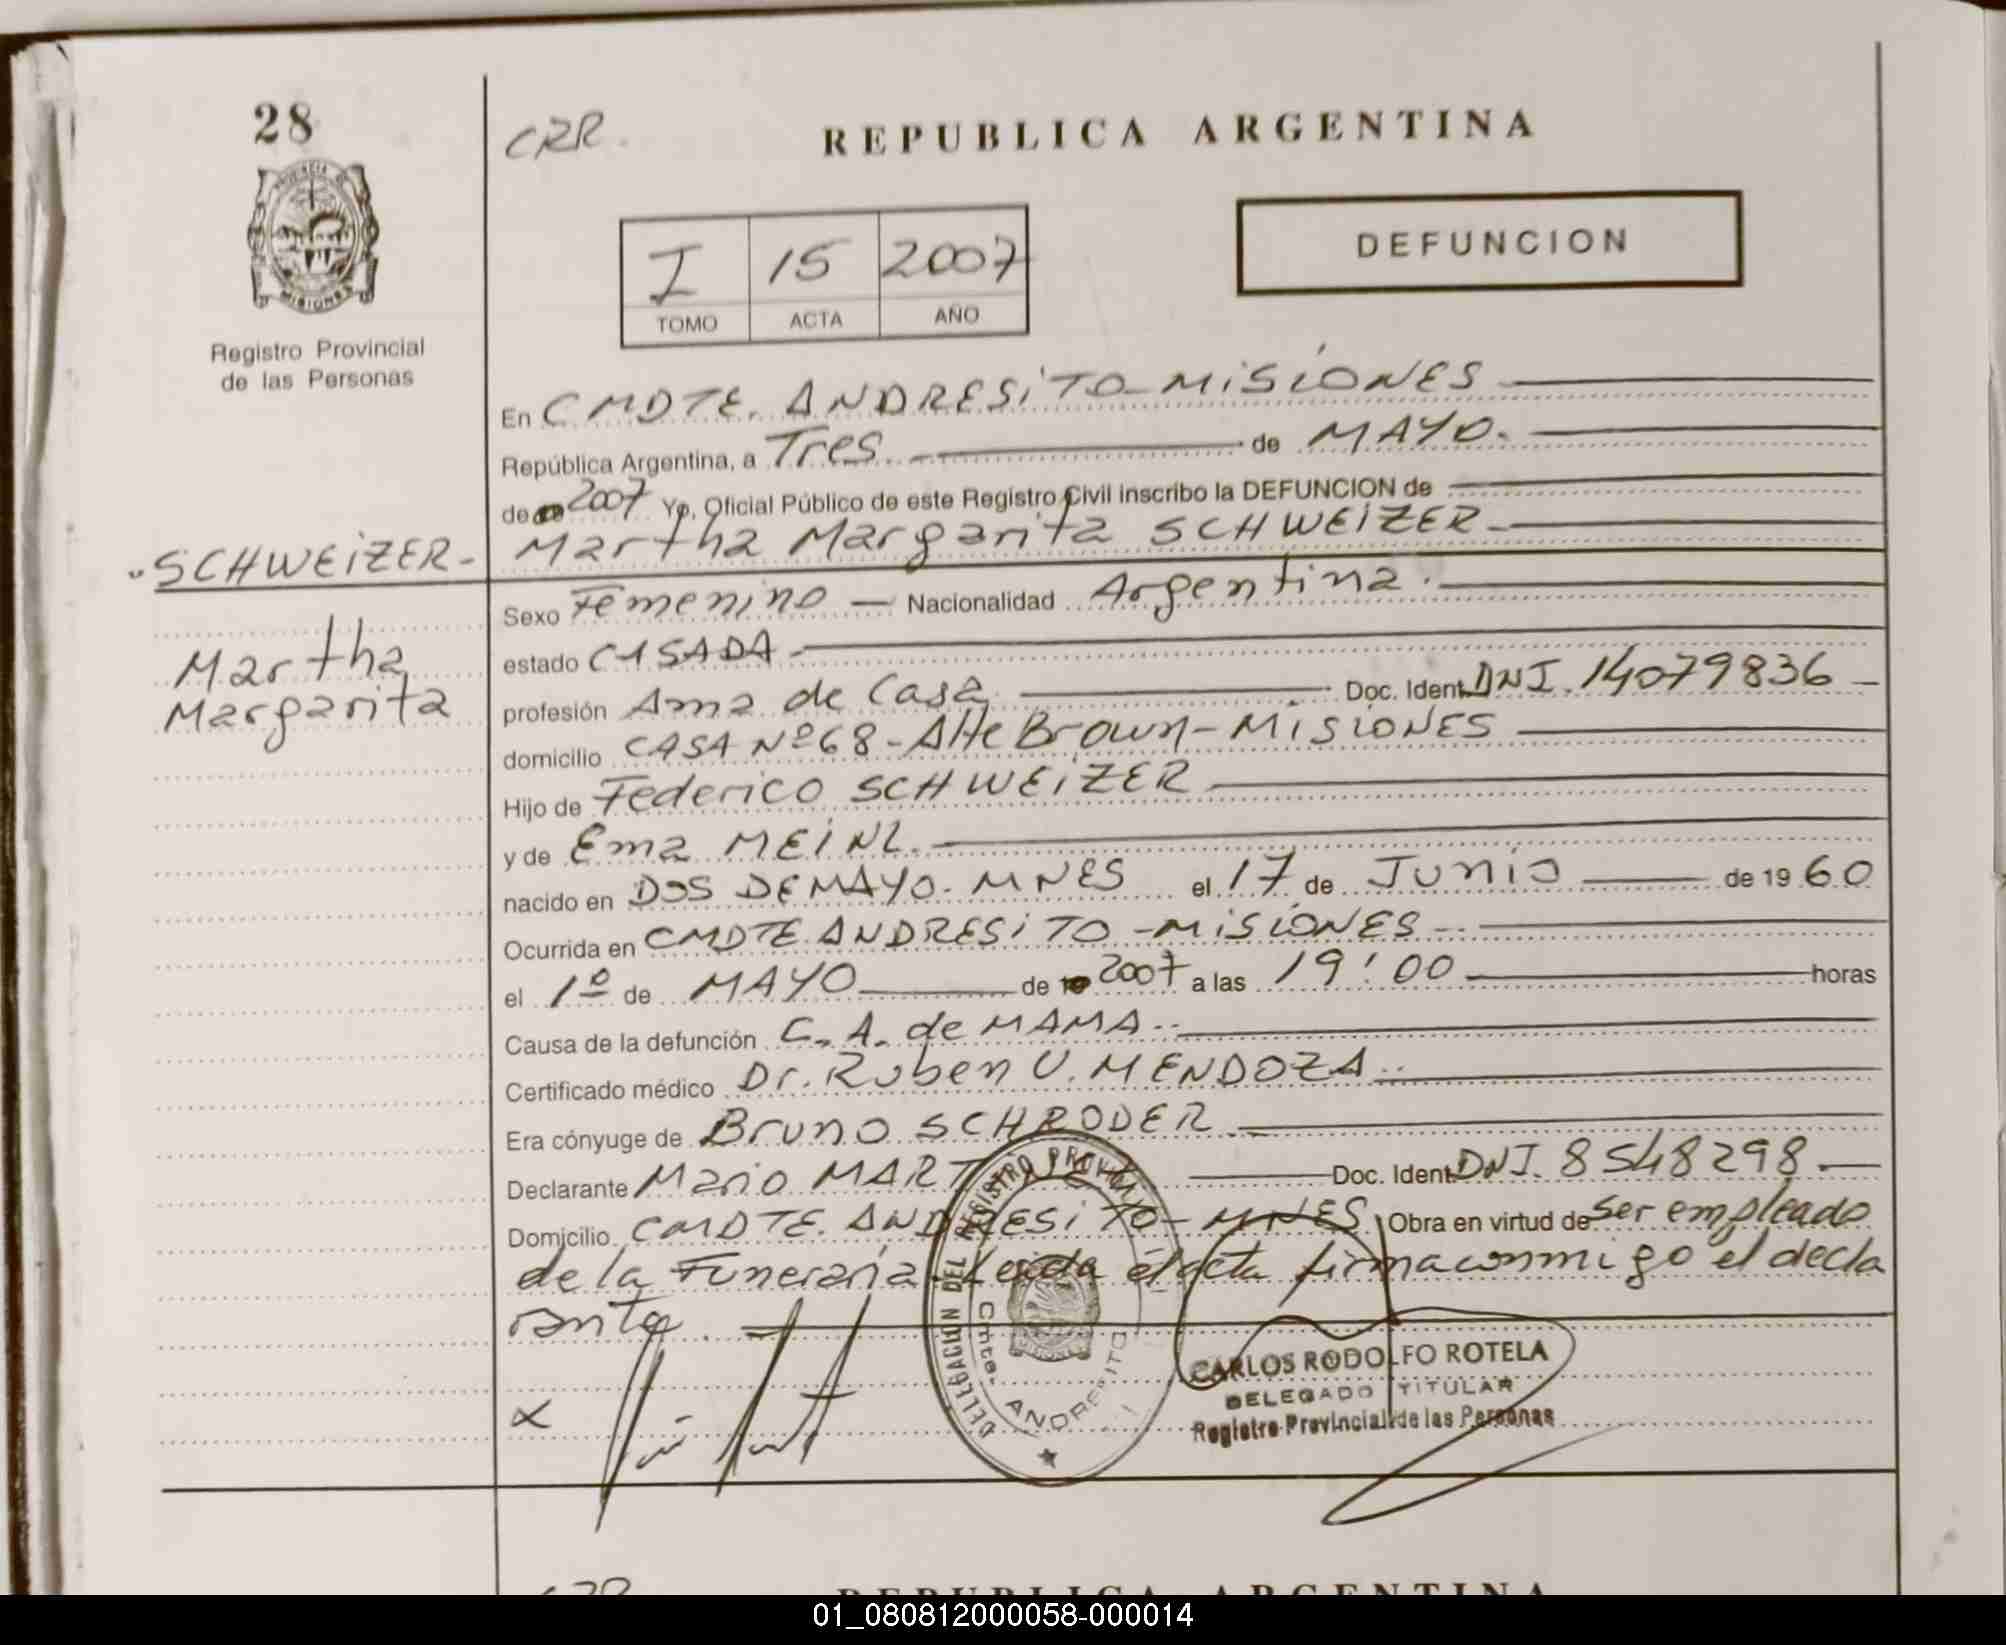 28
CRR.
REPUBLICA ARGENTINA
PROVINCIA DE
MISIONES
Registro Provincial
de las Personas
I 15 2007
TOMO ACTA AÑO
DEFUNCION
En CMDTE. ANDRESITO - MISIONES
República Argentina, a Tres de MAYO.
de 2007 Yo, Oficial Público de este Registro Civil inscribo la DEFUNCION de
Martha Margarita SCHWEIZER
- SCHWEIZER -
Martha
Margarita
Sexo Femenino — Nacionalidad Argentina.
estado CASADA
profesión Ama de Casa Doc. Ident. DNI. 14079836 -
domicilio CASA Nº 68 - Alte Brown - MISIONES
Hijo de Federico SCHWEIZER
y de Ema MEINL
nacido en DOS DE MAYO - MNES el 17 de Junio de 19 60
Ocurrida en CMDTE ANDRESITO - MISIONES
el 1º de MAYO de 2007 a las 19:00 horas
Causa de la defunción C. A. de MAMA
Certificado médico Dr. Ruben U. MENDOZA
Era cónyuge de Bruno SCHRODER
Declarante Mario MART Doc. Ident. DNI. 8548298 -
Domicilio CMDTE. ANDRESITO - MNES Obra en virtud de ser empleado
de la Funeraria - Leida el acta firma conmigo el decla
rante.
DELEGACION DEL REGISTRO PROVINCIAL
Cmte. ANDRESITO
CARLOS RODOLFO ROTELA
DELEGADO TITULAR
Registro Provincial de las Personas
REPUBLICA ARGENTINA
01_080812000058-000014